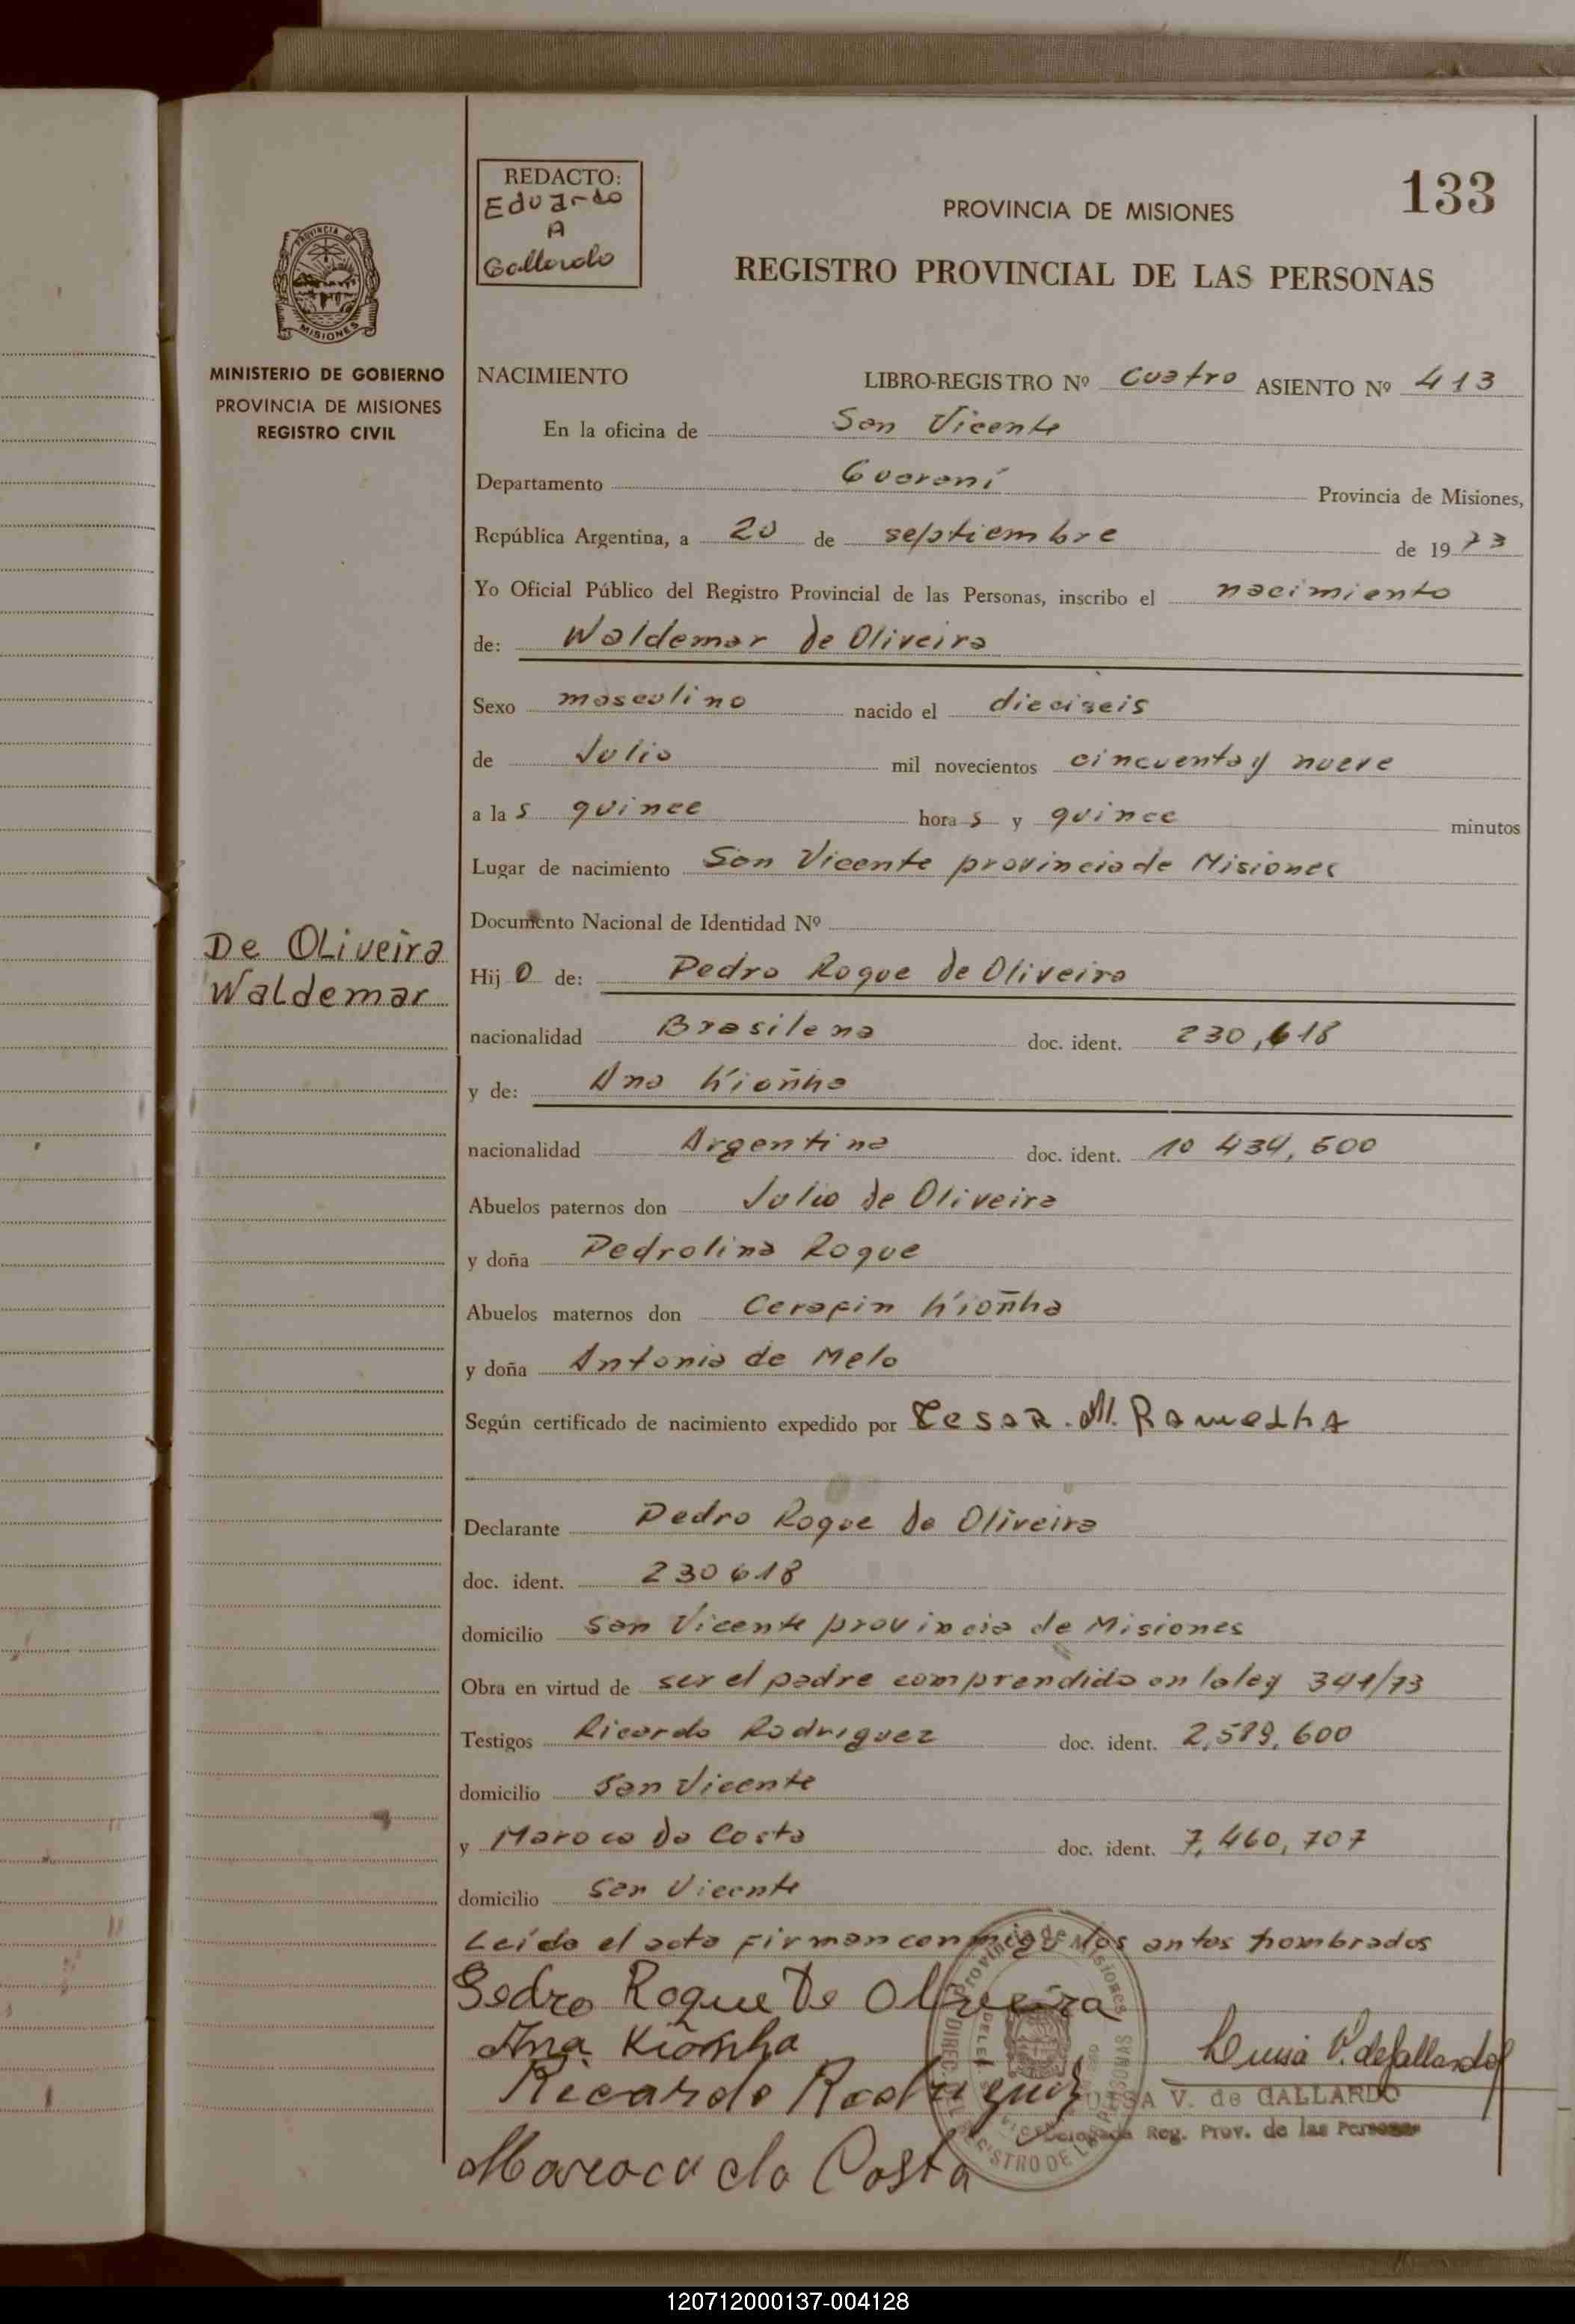 133
REDACTO:
Eduardo
A
Gallardo
PROVINCIA DE MISIONES
REGISTRO PROVINCIAL DE LAS PERSONAS
PROVINCIA DE
MISIONES
MINISTERIO DE GOBIERNO
PROVINCIA DE MISIONES
REGISTRO CIVIL
NACIMIENTO LIBRO-REGISTRO Nº cuatro ASIENTO Nº 413
En la oficina de San Vicente
Departamento Guarani Provincia de Misiones,
República Argentina, a 20 de septiembre de 1973
Yo Oficial Público del Registro Provincial de las Personas, inscribo el nacimiento
de: Waldemar de Oliveira
Sexo masculino nacido el dieciseis
de Julio mil novecientos cincuenta y nueve
a las quince horas y quince minutos
Lugar de nacimiento San Vicente provincia de Misiones
Documento Nacional de Identidad Nº
De Oliveira
Waldemar
Hijo de: Pedro Roque de Oliveira
nacionalidad Brasilena doc. ident. 230,618
y de: Ana Kioñha
nacionalidad Argentina doc. ident. 10 434,600
Abuelos paternos don Julio de Oliveira
y doña Pedrolina Roque
Abuelos maternos don Cerafin Kioñha
y doña Antonia de Melo
Según certificado de nacimiento expedido por Cesar. M.
Declarante Pedro Roque de Oliveira
doc. ident. 230618
domicilio San Vicente provincia de Misiones
Obra en virtud de ser el padre comprendido en la ley 341/73
Testigos Ricardo Rodriguez doc. ident. 2,589,600
domicilio San Vicente
y Maroca da Costa doc. ident. 7,460,707
domicilio San Vicente
Leida el acta firman conmigo los antes nombrados
Pedro Roque De Oliveira
Ana Kionha
Ricardo Rodriguez
Maroca da Costa
Luisa V. de Gallardo
LUISA V. de GALLARDO
Delegada Reg. Prov. de las Personas
120712000137-004128